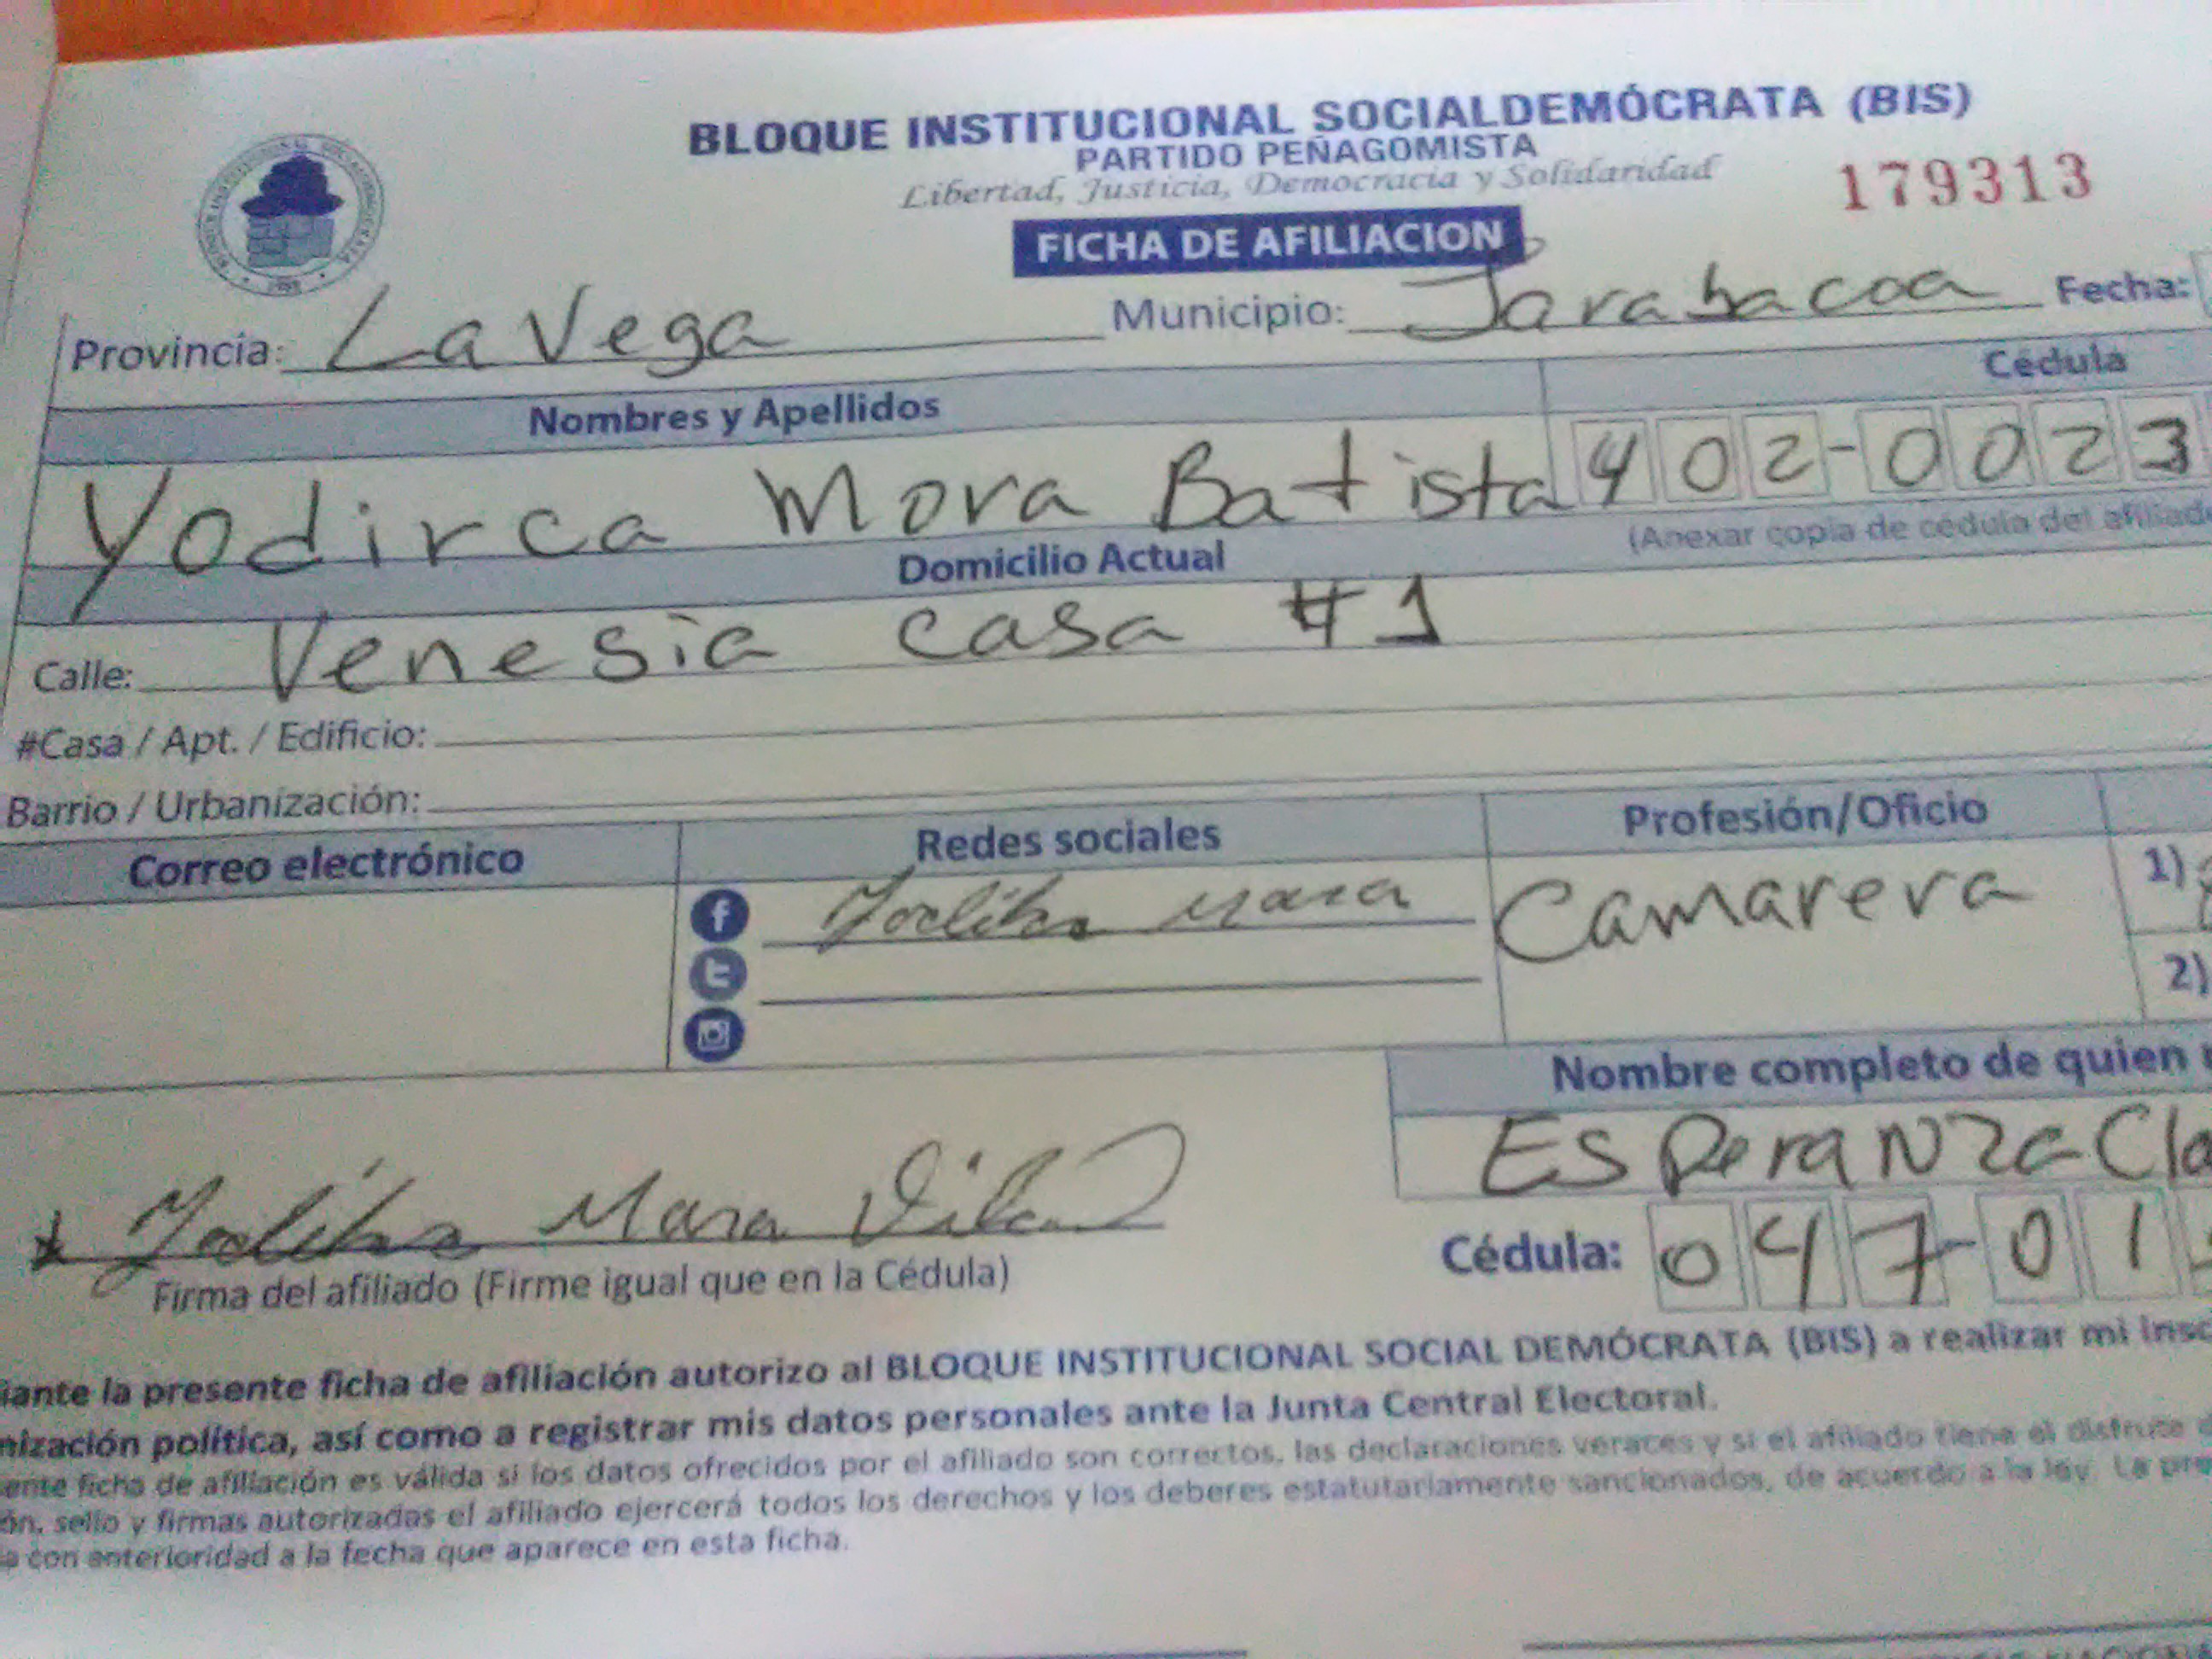 BLOQUE INSTITUCIONAL SOCIALDEMÓCRATA (BIS)
PARTIDO PEÑAGOMISTA
Libertad, Justicia, Democracia y Solidaridad
179313
FICHA DE AFILIACION
Provincia: La Vega Municipio: Jarabacoa Fecha:
Nombres y Apellidos Cédula
Yodirca Mora Batista 402-0023
(Anexar copia de cédula del afiliad
Domicilio Actual
Calle: Venesia casa #1
#Casa / Apt. / Edificio:
Barrio / Urbanización:
Correo electrónico Redes sociales Profesión/Oficio
f Mara Camarera 1)
2)
Nombre completo de quien
Esperanza Cla
Mara
Firma del afiliado (Firme igual que en la Cédula) Cédula: 047-01
iante la presente ficha de afiliación autorizo al BLOQUE INSTITUCIONAL SOCIAL DEMÓCRATA (BIS) a realizar mi insc
nización política, así como a registrar mis datos personales ante la Junta Central Electoral.
ente ficha de afiliación es válida si los datos ofrecidos por el afiliado son correctos, las declaraciones veraces y si el afiliado tiene el disfrute
ón, sello y firmas autorizadas el afiliado ejercerá todos los derechos y los deberes estatutariamente sancionados, de acuerdo a la ley. La pre
a con anterioridad a la fecha que aparece en esta ficha.